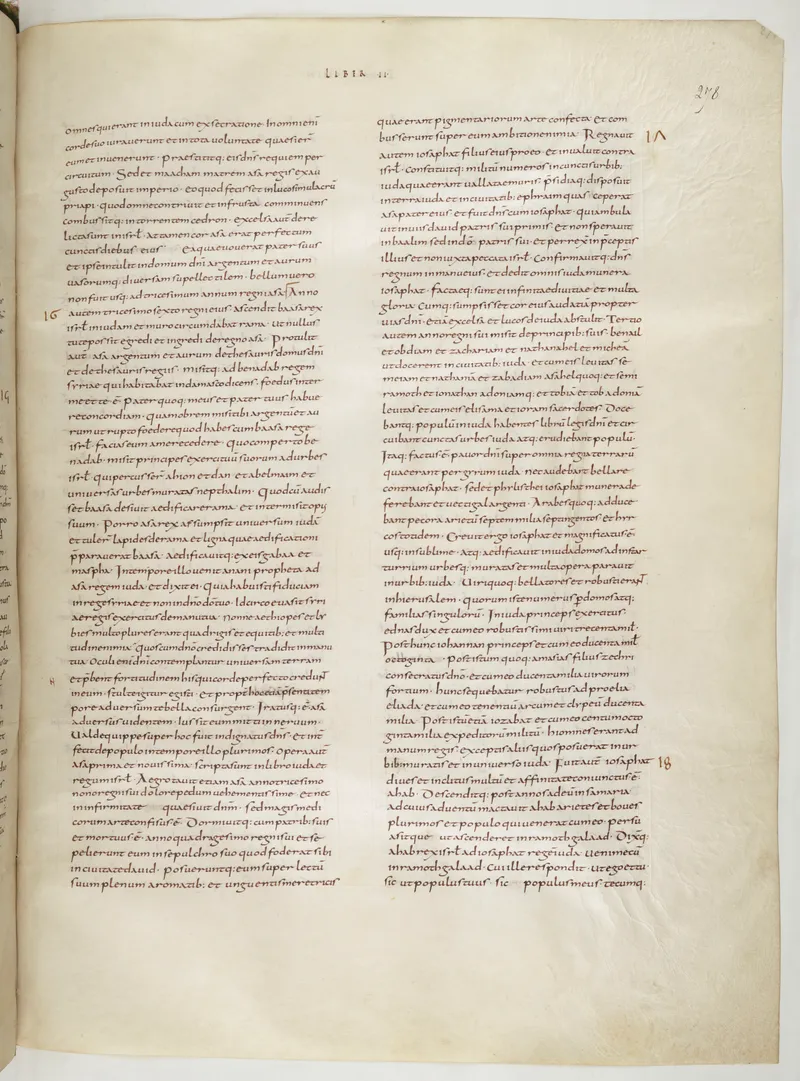 LIBER II
278
omnes qui erant in iuda cum exsecratione. In omni eni
corde suo iurauerunt et in tota uoluntate quaesier̄
eum et inuenerunt. Praestititq: eis dn̄s requiem per
circuitum. Sed et maacham matrem asa regis ex au
gusto deposuit imperio. eo quod fecisset in luco simulacrū
priapi. quod omne contriuit et in frusta comminuens
combussit in torrente cedron. excelsa aut̄ dere
licta sunt in isrl̄. attamen cor asa erat perfectum
cunctis diebus eius Ea quae uouerat pater suus
et ipse intulit in domum dn̄i argentum et aurum
uasorumq: diuersam supellectilem. bellum uero
non fuit usq: ad tricesimum annum regni asa. Anno
16
autem tricesimo sexto regni eius ascendit baasa rex
isrl̄ in iudam et muro circumdabat rama. ut nullus
tuto posset egredi et ingredi de regno asa. Protulit
aut̄ asa argentum et aurum de thesauris domus dn̄i
et de thesauris regis. misitq: ad benadab regem
syriae qui habitabat in damasco dicens. foedus inter
me et te ē. pater quoq: meus et pater tuus habue
re concordiam. quamobrem misi tibi argentū et au
rum ut rupto foedere quod habes cum baasa rege
isrl̄. facias eum a me recedere. quo comperto be
nadab. misit principes exercituū suorum ad urbes
isrl̄. qui percusser̄ ahion et dan et abelmaim et
uniuersas urbes muratas nepthalim. Quod cū audis
set baasa desiuit aedificare rama. et intermisit opus
suum. Porro asa rex assumpsit uniuersum iudā
et tuler̄ lapides de rama et ligna quae aedificationi
p̄parauerat baasa. aedificauitq: ex eis gabaa et
maspha. In tempore illo uenit anani propheta ad
asa regem iuda. et dixit ei. Quia habuisti fiduciam
in rege syriae et non in dn̄o dō tuo. Idcirco euasit syri
ae regis exercitus de manu tua. Nonne aethiopes et ly
bies multo plures erant quadrigis et equitib: et multi
tudine nimia. quos cum dn̄o credidisses tradidit in manu
tua. Oculi eni dn̄i contemplantur uniuersam terram
et p̄bent fortitudinem his qui corde perfecto credunt
in eum. stulte igitur egisti. et propt̄ hoc ex p̄senti tem
pore aduersum te bella consurgent. Iratusq: ē asa
aduersus uidentem. iussit eum mitti in neruum.
Ualde quippe super hoc fuit indignatus dn̄s. et int̄
fecit de populo in tempore illo plurimos. Opera aut̄
asa prima et nouissima. scripta sunt in libro iuda et
regum isrl̄. Aegrotauit etiam asa anno tricesimo
nono regni sui dolore pedum uehementissime. et nec
in infirmitate quaesiuit dnm̄. sed magis medi
corum arte confisus ē. Dormiuitq: cum patrib: suis
et mortuus ē. anno quadragesimo regni sui et se
pelierunt eum in sepulchro suo quod foderat sibi
in ciuitate dauid. posueruntq: eum super lectū
suum plenum aromatib: et unguentis meretriciis
quae erant pigmentariorum arte confecta. et com
busserunt super eum ambitione nimia. Regnauit
17
autem iosaphat filius eius pro eo. et inualuit contra
isrl̄. Constituitq: militū numeros in cunctis urbib:
iuda quae erant uallatae muris. p̄sidiaq: disposuit
in terra iuda et in ciuitatib: ephraim quas coeperat
asa pater eius et fuit dn̄s cum iosaphat. quia ambula
uit in uiis dauid patris sui primis et non sperauit
in baalim sed in dō patris sui. et perrexit in p̄ceptis
illius et non iuxta peccata isrl̄. Confirmauitq: dn̄s
regnum in manu eius. et dedit omnis iuda munera
iosaphat. factaeq: sunt ei infinitae diuitiae et multa
gloria. Cumq: sumpsisset cor eius audatiā propter
uias dn̄i. etiā excelsa et lucos de iuda abstulit. Tertio
autem anno regni sui misit de principib: suis. benail
et obdiam et zachariam et nathanahel et micheā
ut docerent in ciuitatib: iuda. et cum eis leuitas se
meiam et nathaniā et zabadiam asahelquoq: et semi
ramoth et ionathan adoniamq: et tobia et tobadoniā
leuitas et cum eis elisama et ioram sacerdotes. Doce
bantq: populū in iuda habentes librū legis dn̄i et cir
cuibant cunctas urbes iuda atq: erudiebant populū.
Itaq: factus ē. pauor dn̄i super omnia regna terrarū
quae erant per gyrum iuda. nec audebant bellare
contra iosaphat. sed et phylisthei iosaphat munera de
ferebant et uectigal argenti. Arabes quoq: adduce
bant pecora arietū septem milia septingentos. et hyr
cos totidem. Creuit ergo iosaphat et magnificatus ē.
usq: in sublime. atq: aedificauit in iuda domos ad instar
turrium urbesq: muratas et multa opera parauit
in urbib: iuda. Uiri quoq: bellatores et robusti erant
in hierusalem. quorum iste numerus p̄ domos atq:
familias singulorū. In iuda principes exercitus.
ednas dux et cum eo robustissimi uiri trecenta mil̄.
Post hunc iohannan princeps et cum eo ducenta mil̄
octoginta. Post istum quoq: amasias filius zechri
consecratus dn̄o. et cum eo ducenta milia uirorum
fortium. hunc sequebatur robustus ad proelia
eliada et cum eo tenentiū arcum et clypeū ducenta
milia. Post istū etiā iozabat et cum eo centum octo
ginta milia expeditorū militū. hi omnes erant ad
manum regis. exceptis aliis quos posuerat in ur
bib: muratis et in uniuerso iuda. Fuit aut̄ iosaphat
18
diues et inclitus multū et affinitate coniunctus ē.
ahab. Descenditq: post annos ad eū in samaria
ad cuius aduentū mactauit ahab arietes et boues
plurimos et populo qui uenerat cum eo. persua
sitque ut ascenderet in ramoth galaad. Dixq:
ahab rex isrl̄ ad iosaphat regē iuda. ueni mecū
in ramoth galaad. Cui ille respondit. ut ego et tu
sic ut populus tuus. sic populus meus tecumq: